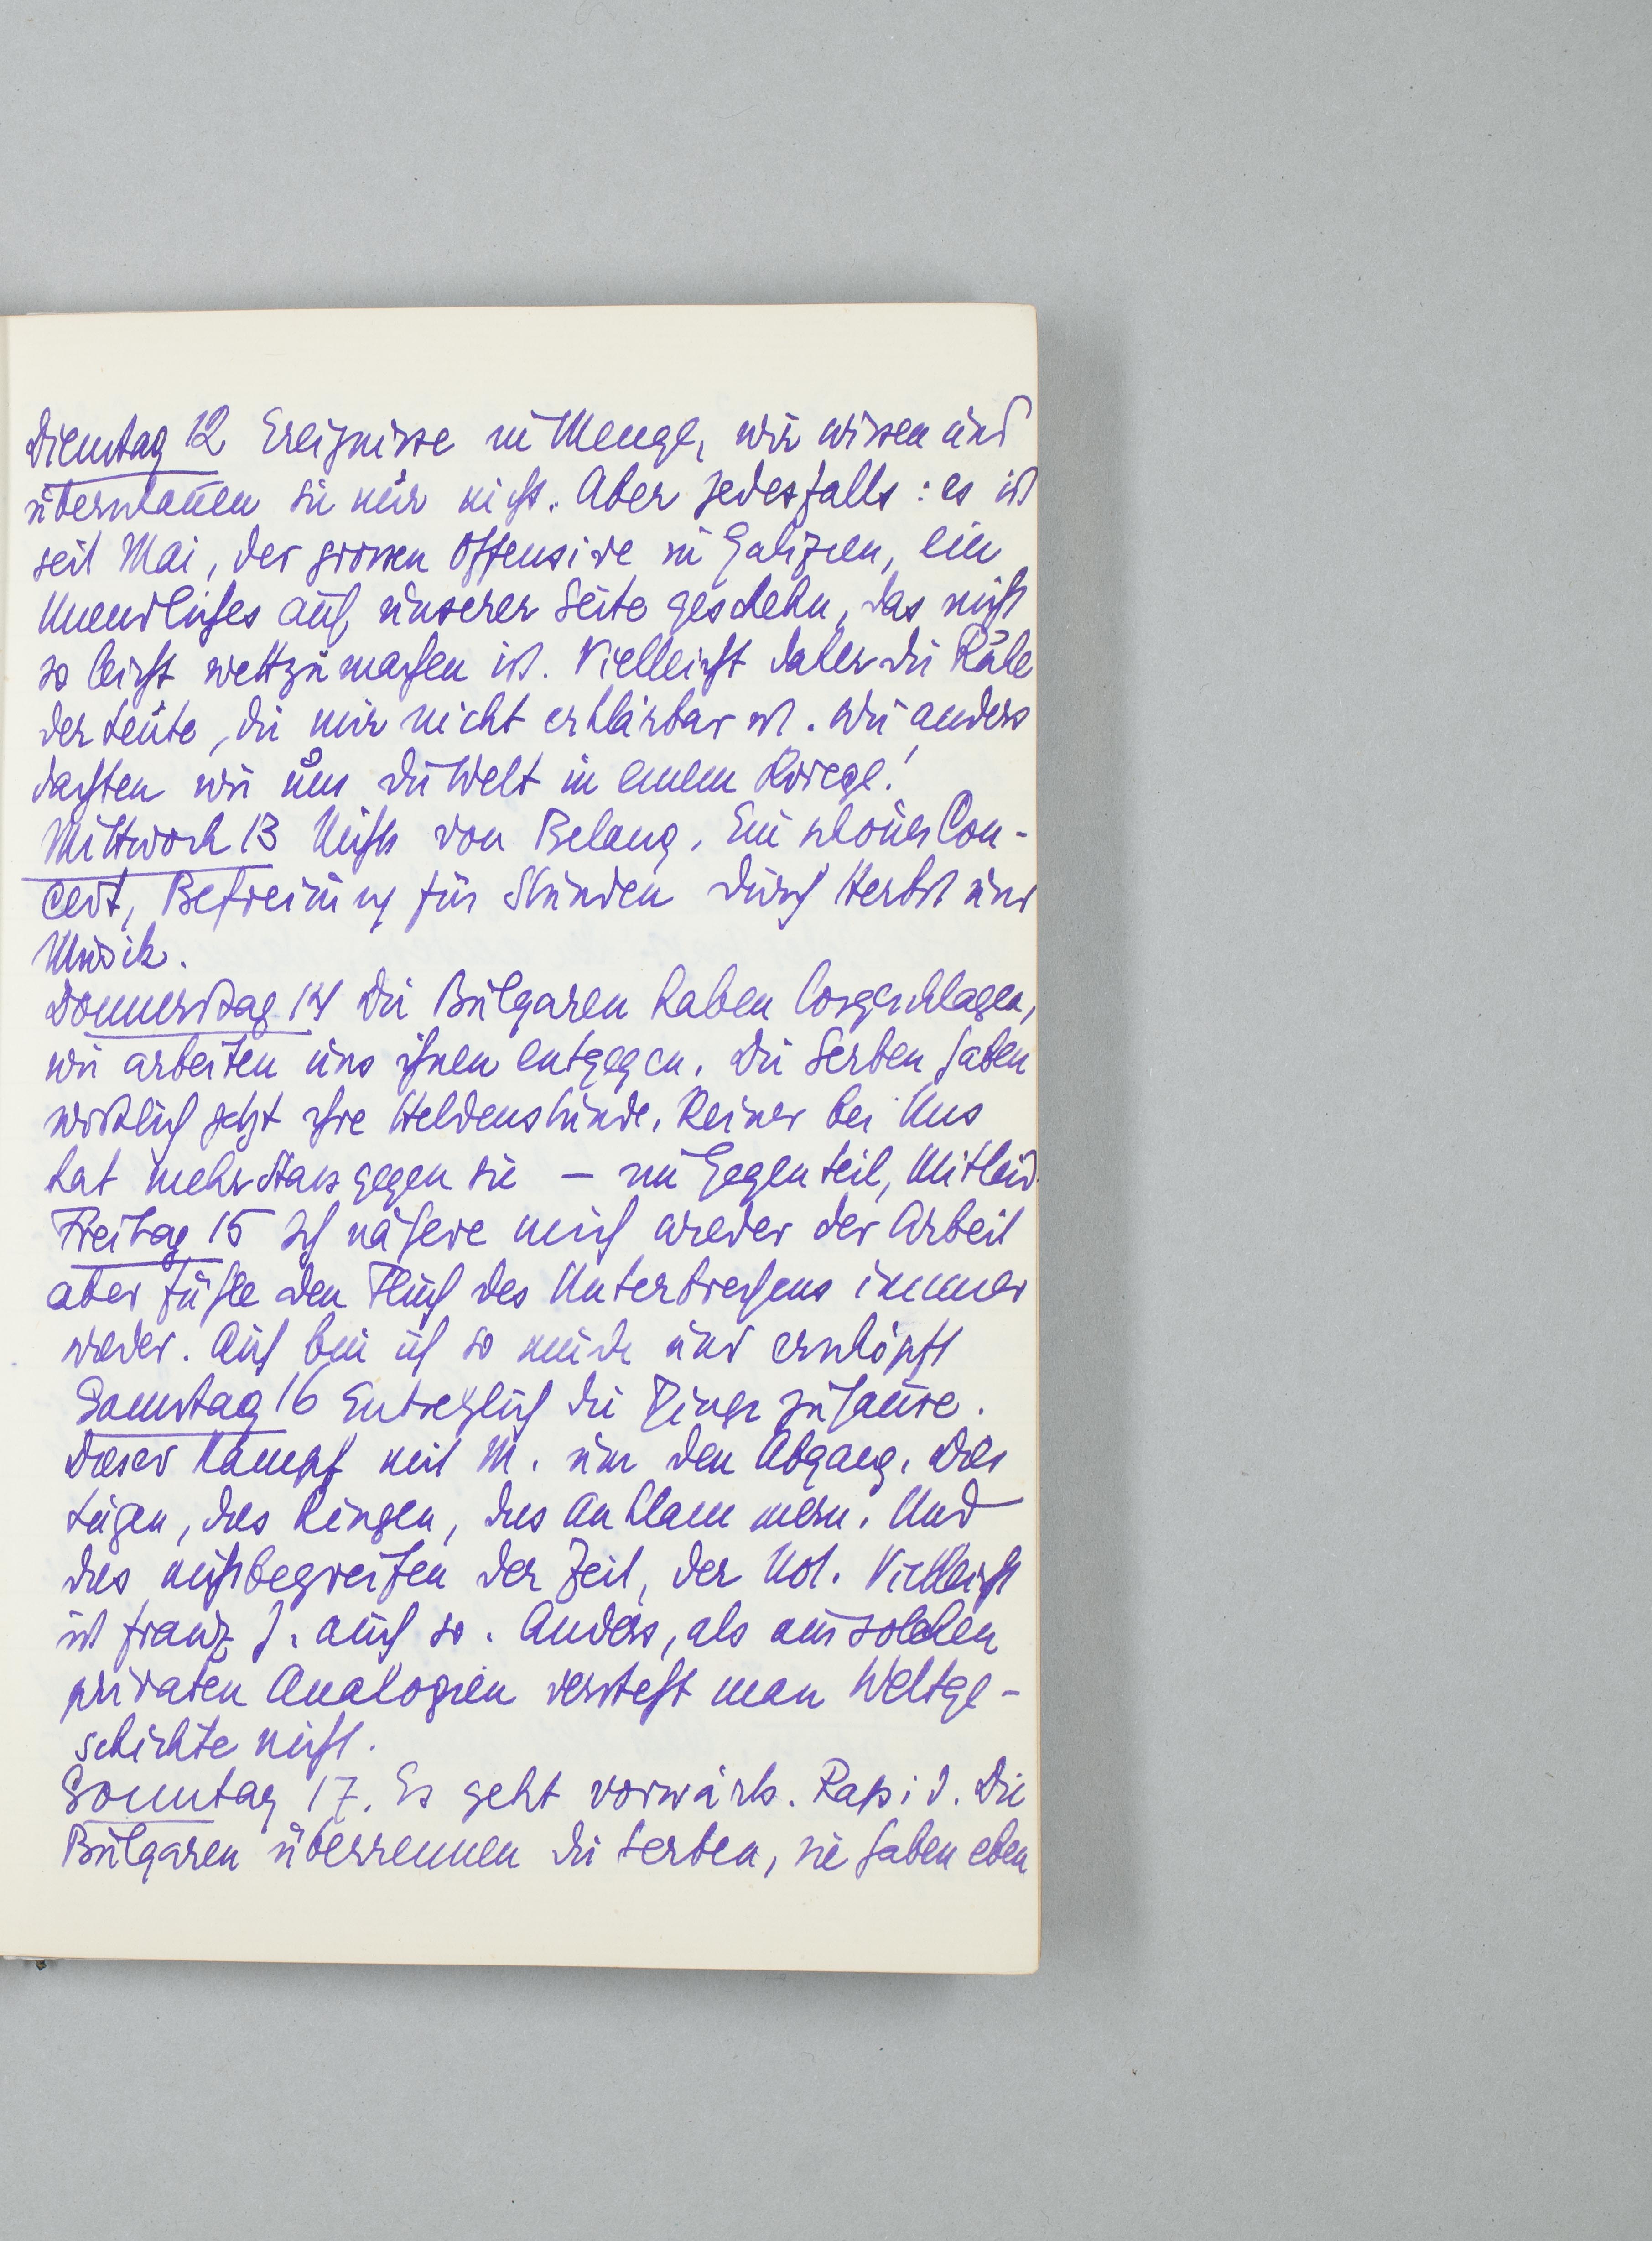 Dienstag 12 Ereignisse in Menge, wir wissen und
überschauen sie nur nicht. Aber jedesfalls: es ist
seit Mai, der grossen Offensive in Galizien, ein
Unendliches auf unserer Seite geschehn, das nicht
so leicht wettzumachen ist. Vielleicht daher die Ruhe
der Leute, die mir nicht erklärbar ist. Wie anders
dachten wir uns die Welt in einem Kriege!
Mittwoch 13 Nichts von Belang. Ein schönes Con-
cert, Befreiung für Stunden durch Herbst und
Musik.
Donnerstag 14 Die Bulgaren haben losgeschlagen,
wir arbeiten uns ihnen entgegen. Die Serben haben
wirklich jetzt ihre Heldenstunde. Keiner bei Uns
hat mehr Hass gegen sie – im Gegenteil, Mitleid.
Freitag 15 Ich nähere mich wieder der Arbeit
aber fühle den Fluch des Unterbrechens immer
wieder. Auch bin ich so müde und erschöpft
Samstag 16 Entsetzlich die Dinge zuhause.
Dieser Kampf mit M. um den Abgang. Das
Lügen, das Ringen, das Anklammern. Und
das Nichtbegreifen der Zeit, der Not. Vielleicht
ist Franz J. auch so. Anders, als aus solchen
privaten Analogien versteht man Weltge-
schichte nicht.
Sonntag 17. Es geht vorwärts. Rapid. Die
Bulgaren überrennen die Serben, sie haben eben